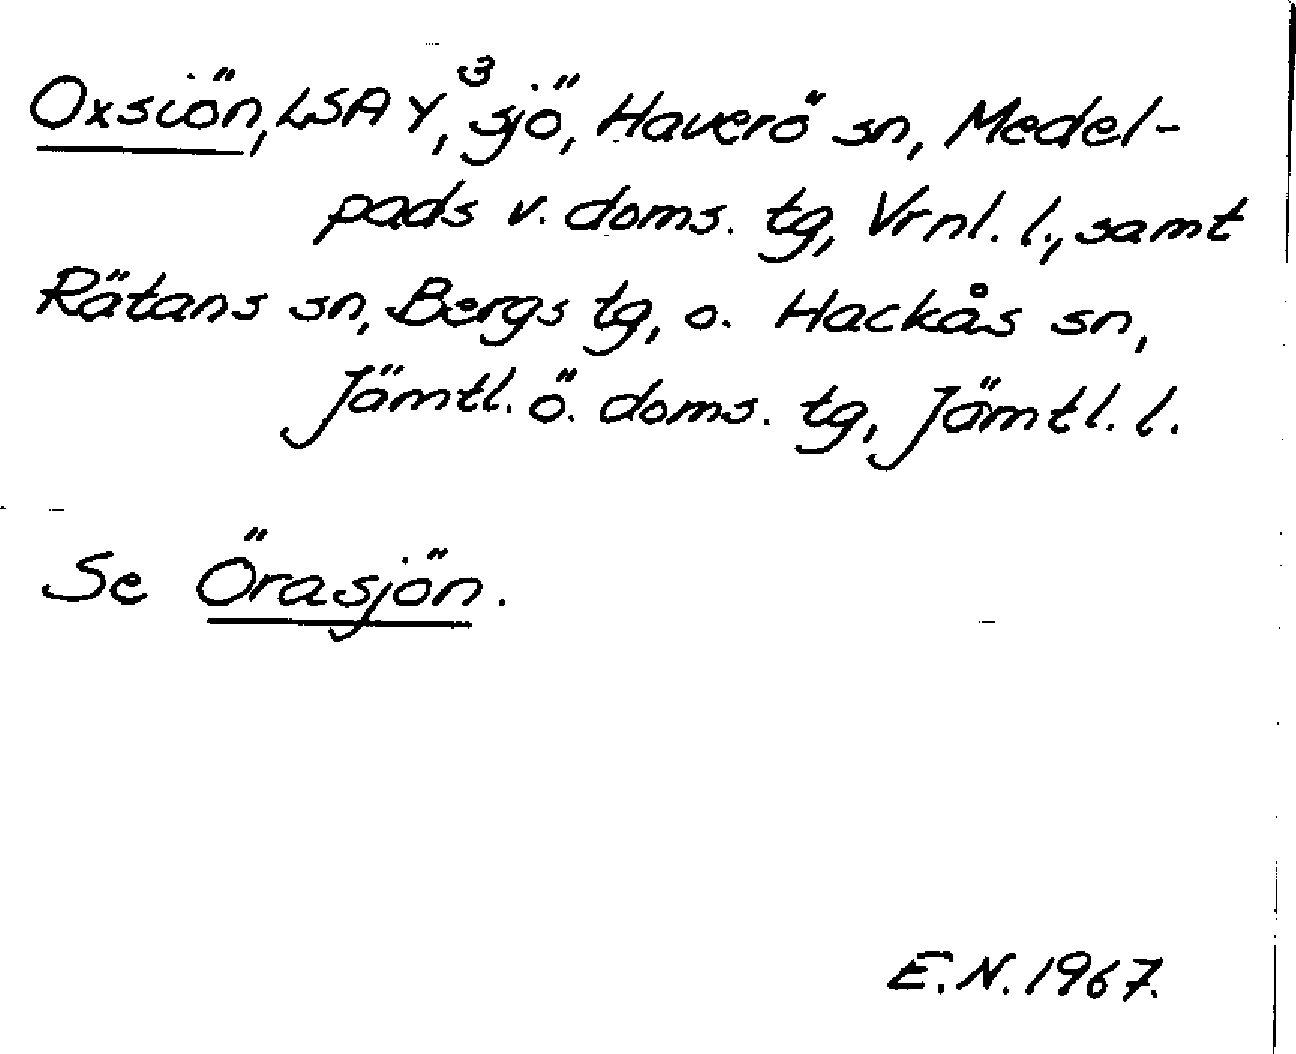 Oxsiön, LSA Y, ³ sjö, Haverö sn, Medel-
pads v. doms. tg, Vrnl. l., samt
Rätans sn, Bergs tg, o. Hackås sn,
Jämtl. ö. doms. tg, Jämtl. l.
Se Örasjön.
E.N. 1967.